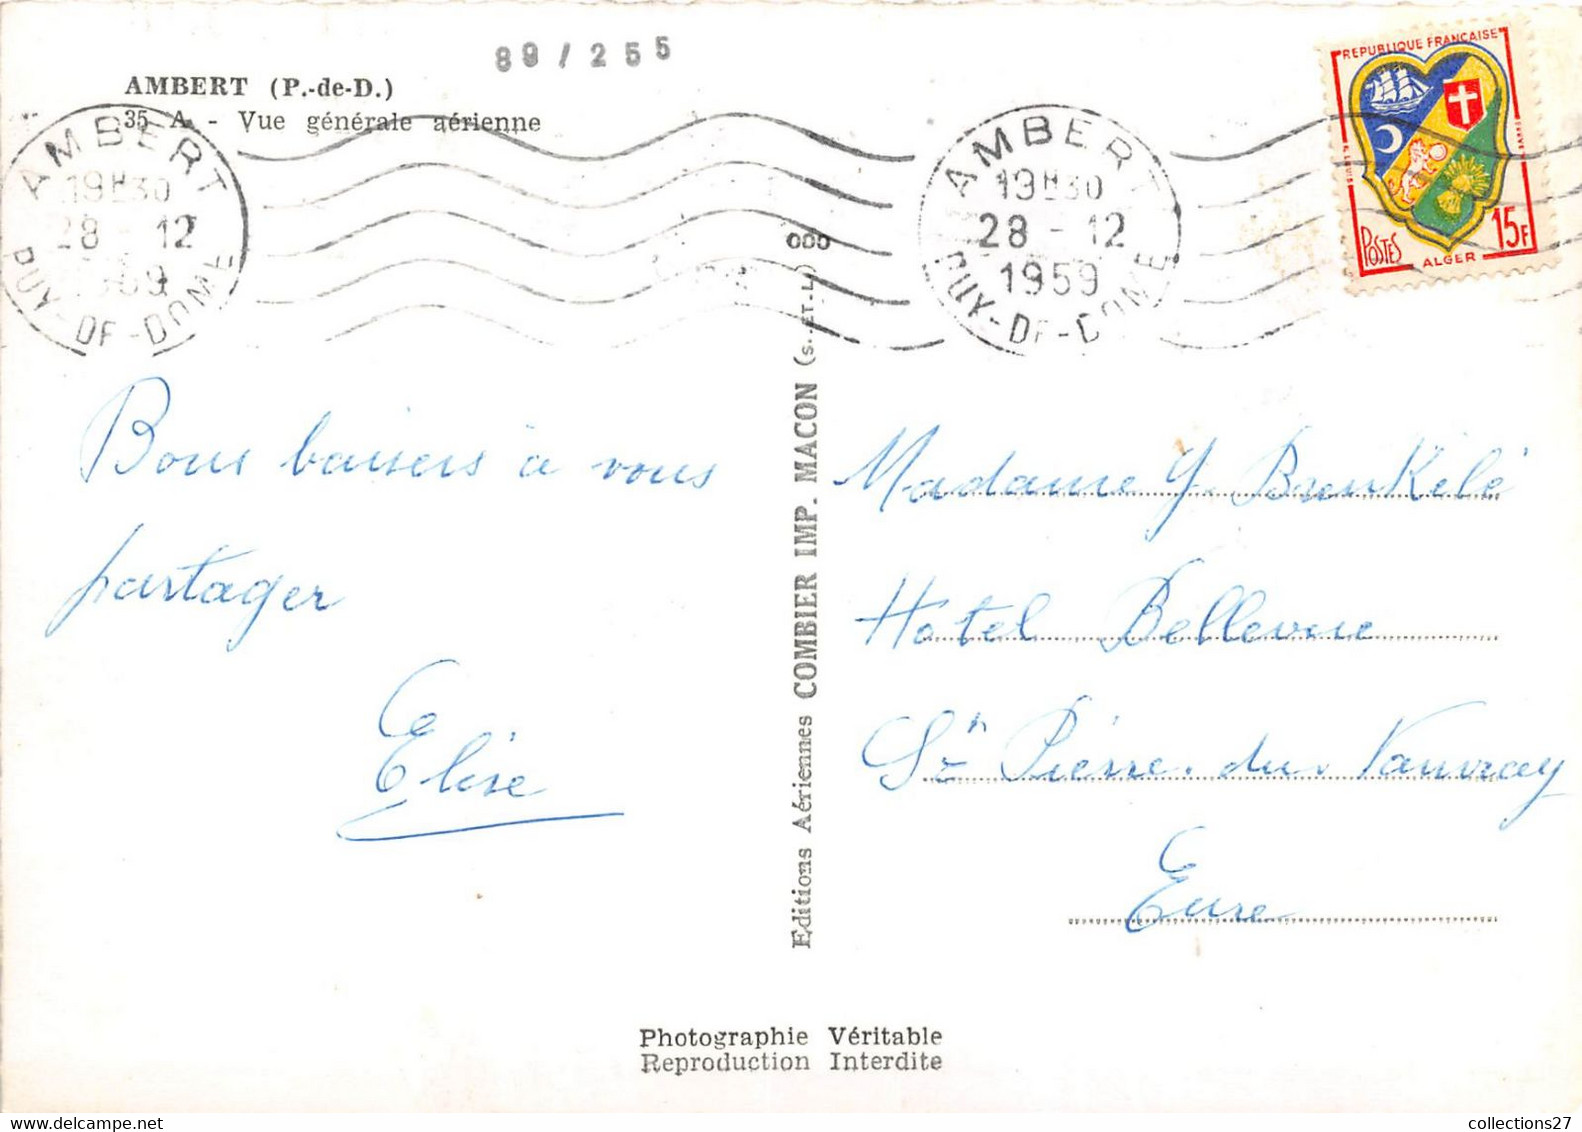 89/255
AMBERT (P.-de-D.)
35 A - Vue générale aérienne
AMBERT
19H30
28-12
1959
PUY-DE-DOME
AMBERT
19H30
28-12
1959
PUY-DE-DOME
REPUBLIQUE FRANÇAISE
POSTES
ALGER
15F
Bons baisers à vous
partager
Elise
Editions Aériennes COMBIER IMP. MACON (S.-ET-L.)
Madame Y.
Hotel Bellevue
St Pierre du Vauvray
Eure
Photographie Véritable
Reproduction Interdite
collections27